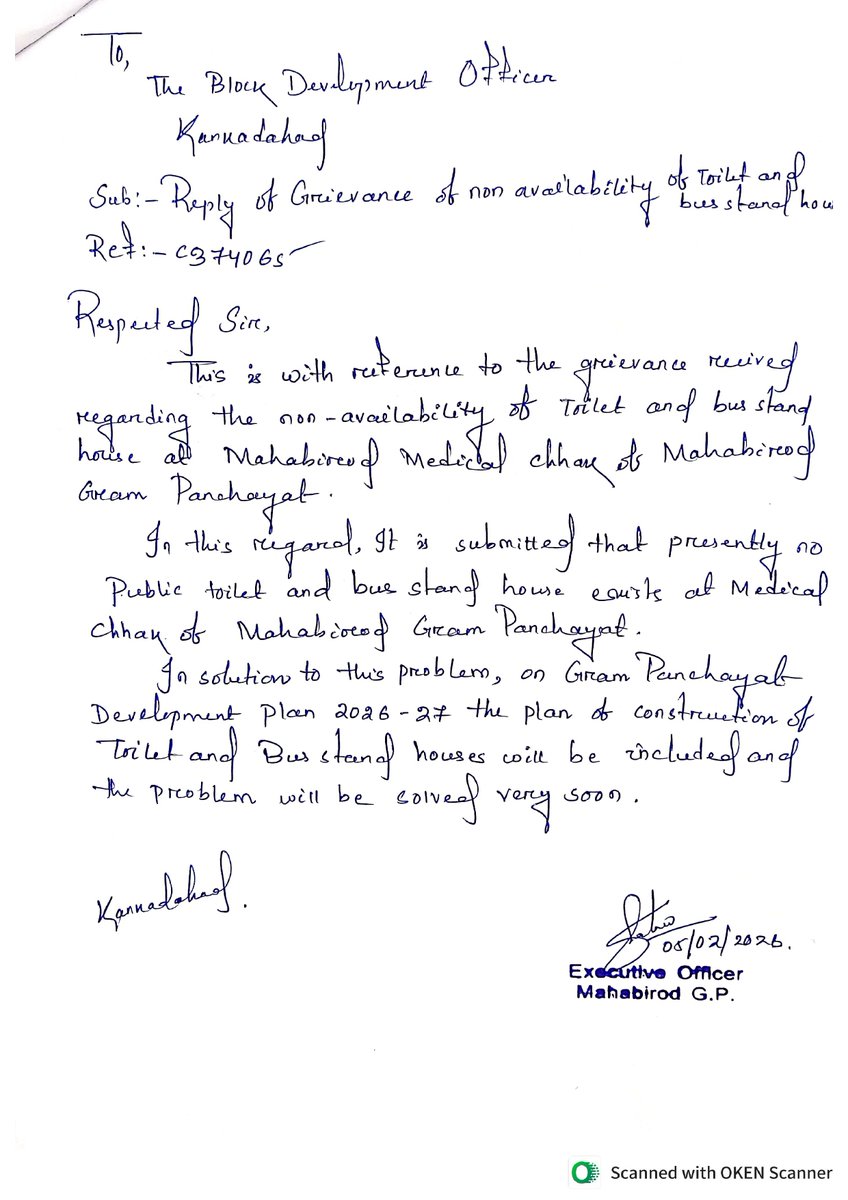 To,
The Block Development Officer
Kannadahad
Sub:- Reply of Grievance of non availability of Toilet and
bus stand hou
Ref:- C374065
Respected Sir,
This is with reference to the grievance recived
regarding the non-availability of Toilet and bus stand
house at Mahabirod Medical chhak of Mahabirod
Gram Panchayat.
In this regard, It is submitted that presently no
Public toilet and bus stand house exists at Medical
Chhak of Mahabirod Gram Panchayat.
In solution to this problem, on Gram Panchayat
Development plan 2026-27 the plan of construction of
Toilet and Bus stand houses will be included and
the problem will be solved very soon.
Kannadahad.
05/02/2026.
Executive Officer
Mahabirod G.P.
Scanned with OKEN Scanner